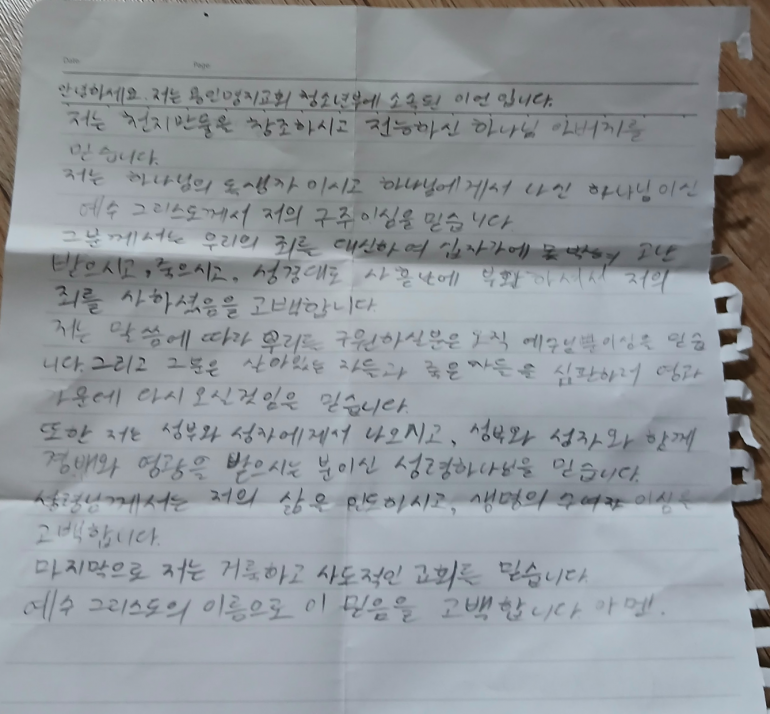 Date
Page
안녕하세요. 저는 용인명지교회 청소년부에 소속된 이언 입니다.
저는 천지만물을 창조하시고 전능하신 하나님 아버지를
믿습니다.
저는 하나님의 독생자 이시고 하나님에게서 나신 하나님이신
예수 그리스도께서 저의 구주이심을 믿습니다
그분께서는 우리의 죄를 대신하여 십자가에 못박혀 고난
받으시고, 죽으시고, 성경대로 사흘난에 부활하셔서 저의
죄를 사하셨음을 고백합니다.
저는 말씀에 따라 우리를 구원하실분은 오직 예수님뿐이심을 믿습
니다. 그리고 그분은 살아있는 자들과 죽은 자들을 심판하러 영광
가운데 다시 오실것임은 믿습니다.
또한 저는 성부와 성자에게서 나오시고, 성부와 성자와 함께
경배와 영광을 받으시는 분이신 성령하나님을 믿습니다.
성령님께서는 저의 삶은 인도하시고, 생명의 수여자 이심을
고백합니다.
마지막으로 저는 거룩하고 사도적인 교회를 믿습니다.
예수 그리스도의 이름으로 이 믿음을 고백합니다 아멘.